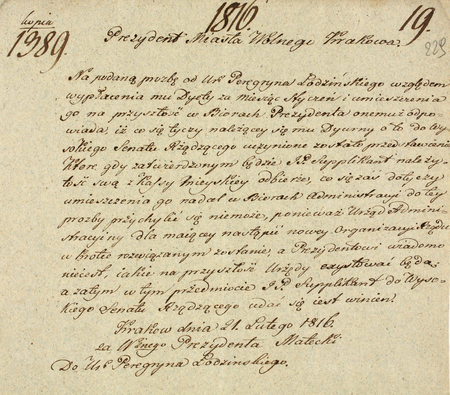 kopia 1816. 19.
1389. 229
Prezydent Miasta Wolnego Krakowa.
Na podaną prozbę od Ur. Peregryna Łodzińskiego względem
wypłacenia mu Dyety za miesiąc Styczeń i umieszczenia
go na przyszłość w Biorach Prezydenta onemuż odpo-
wiada, iż co się tyczy należącey się mu Dyurny o to do Wy-
sokiego Senatu Rządzącego uczynione zostało przedstawienie
które, gdy zatwierdzonym będzie JP. Supplikant należy-
tość swą z Kassy Mieyskiey odbierze, co się zaś dotyczy
umieszczenia go nadal w Biorach Administracyi do tey
prozby przychylić się niemoże, ponieważ Urząd Admini-
stracyiny dla maiącey nastąpić nowey Organizacyi Rządu
w krotce rozwiązanym zostanie, a Prezydentowi wiadomo
nieiest, iakie na przyszłość Urzędy exystować będą;
a zatym w tym przedmiocie JP. Supplikant do Wyso-
kiego Senatu Rządzącego udać się iest winien.
Krakow dnia 21. Lutego 1816.
za Prezydenta Małecki
Do Ur. Peregryna Łodzinskiego.